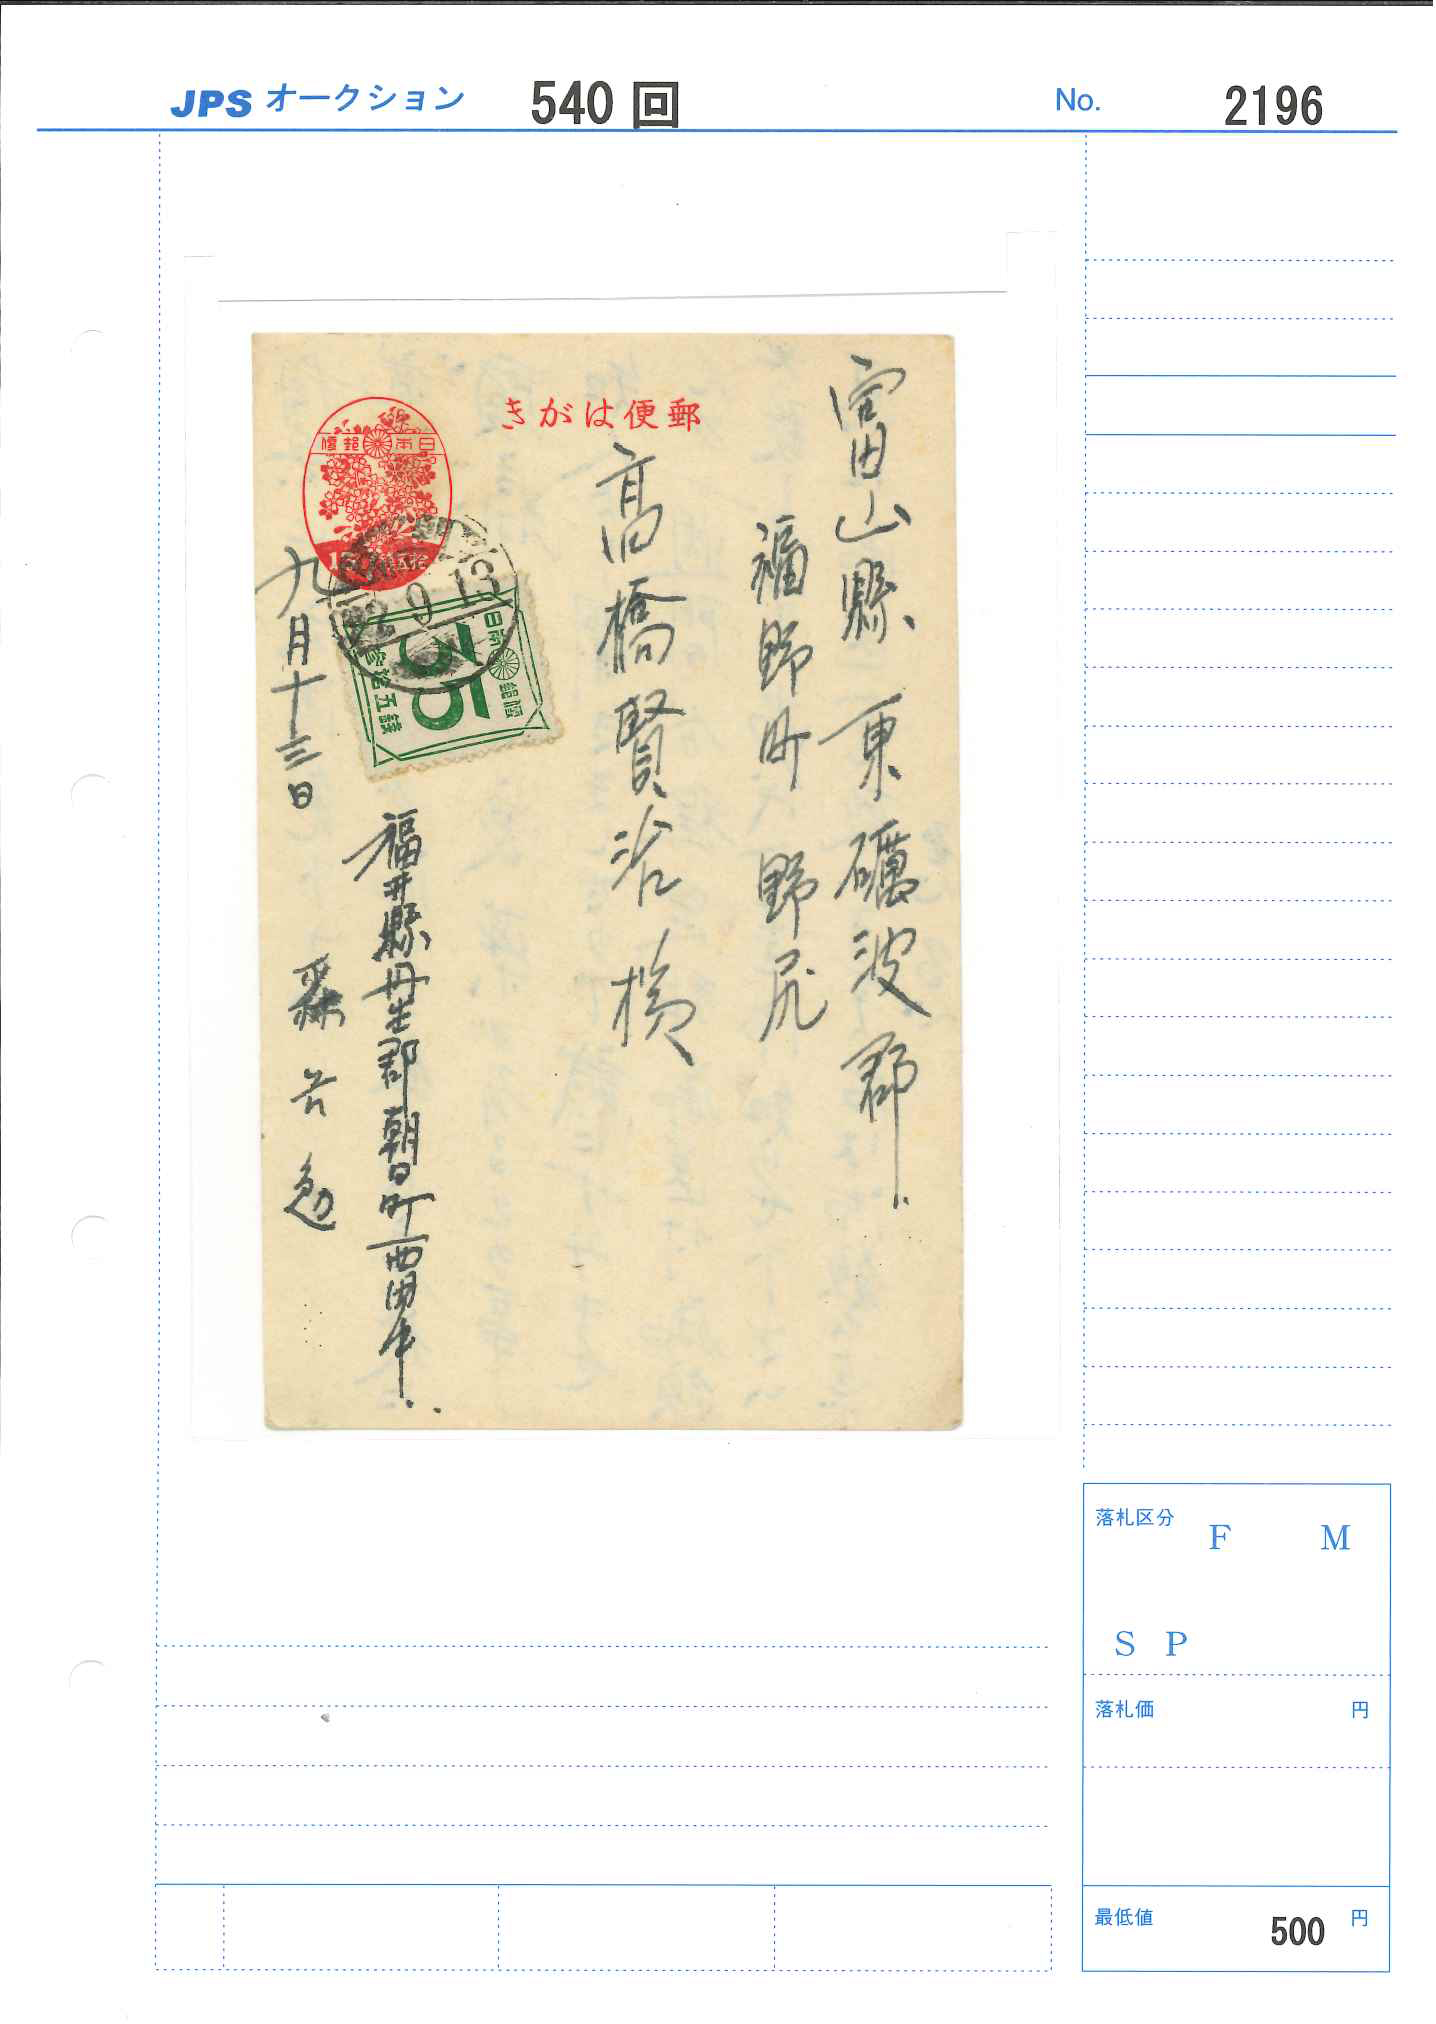 JPS オークション 540 回 No. 2196
郵便はがき
日本郵便
富山縣東礪波郡
福野町野尻
高橋賢治様
22.9.13
日本郵便
35
参拾五銭
九月十三日
福井縣丹生郡朝日町西田中
勉
落札区分
F M
S P
落札価 円
最低値 500 円